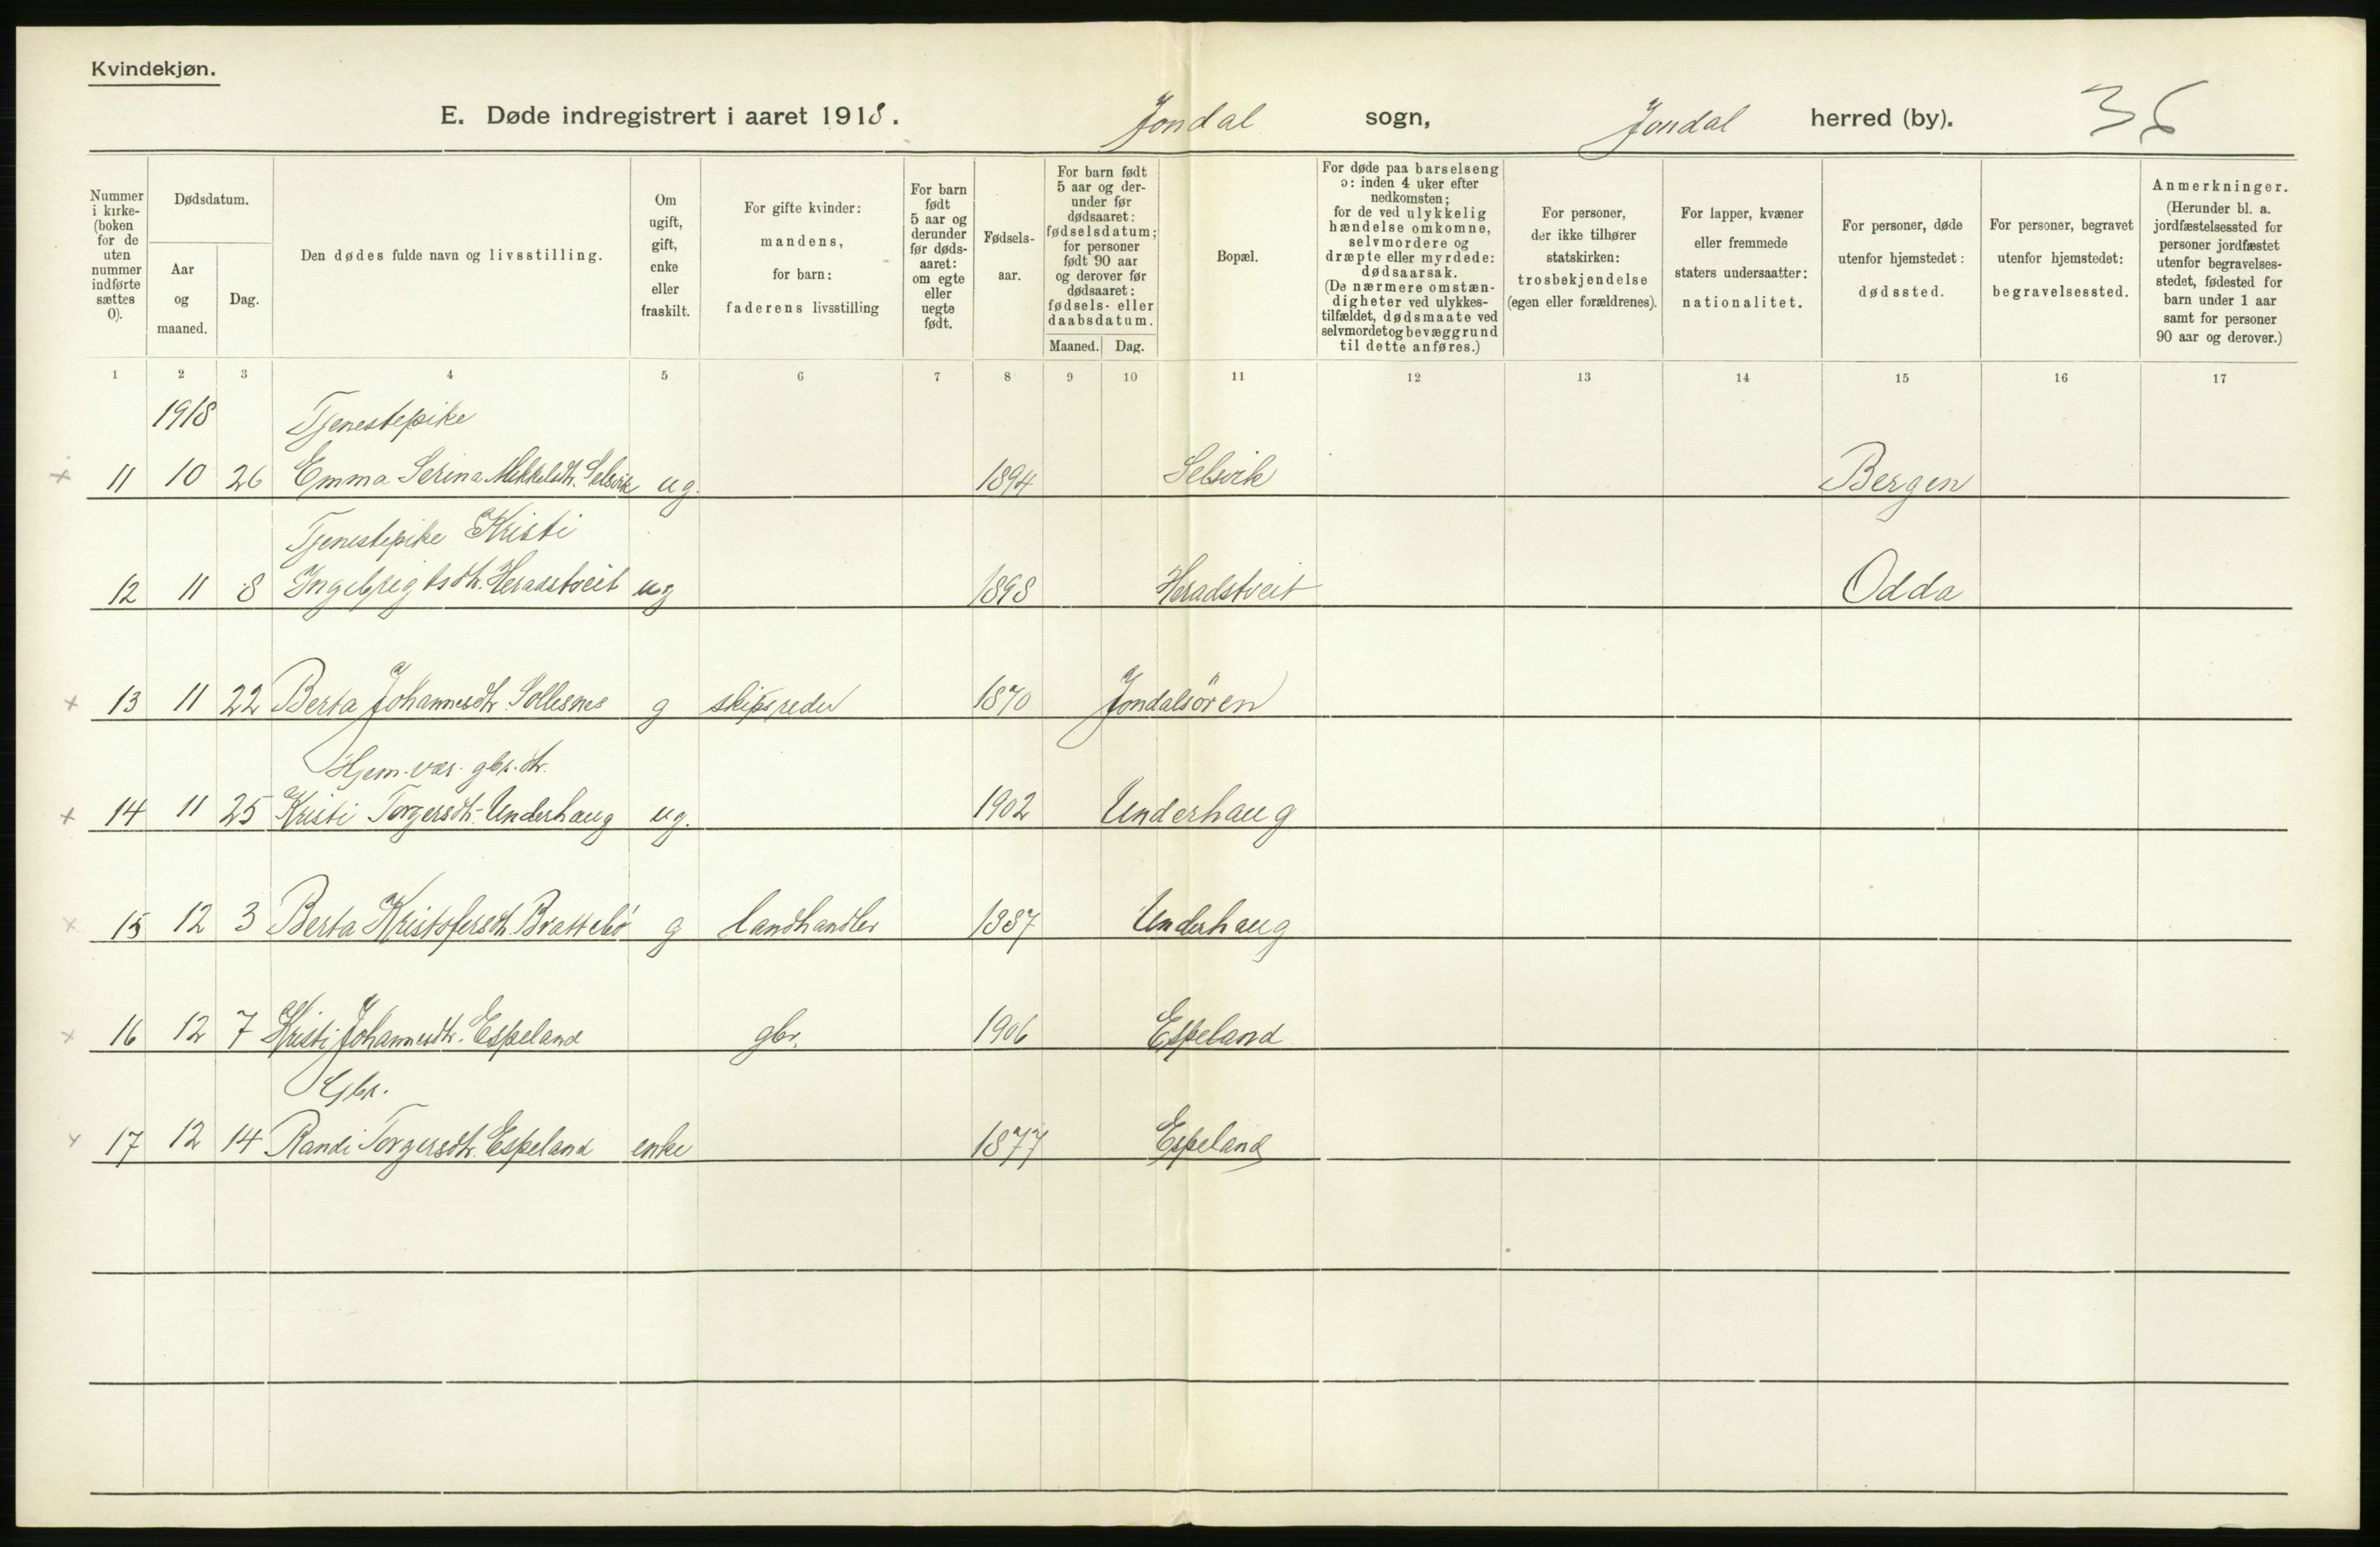 Kvindekjøn.
E. Døde indregistrert i aaret 1918. Jondal sogn, Jondal herred (by). 36
Nummer i kirke-(boken for de uten nummer indførte sættes 0).
Dødsdatum.
Aar og maaned.
Dag.
Den dødes fulde navn og livsstilling.
Om ugift, gift, enke eller fraskilt.
For gifte kvinder: mandens, for barn: faderens livsstilling
For barn født 5 aar og derunder før døds-aaret: om egte eller uegte født.
Fødsels-aar.
For barn født 5 aar og der-under før dødsaaret: fødselsdatum; for personer født 90 aar og derover før dødsaaret: fødsels- eller daabsdatum.
Maaned. Dag.
Bopæl.
For døde paa barselseng ɔ: inden 4 uker efter nedkomsten; for de ved ulykkelig hændelse omkomne, selvmordere og dræpte eller myrdede: dødsaarsak. (De nærmere omstæn-digheter ved ulykkes-tilfældet, dødsmaate ved selvmord et og bevæggrund til dette anføres.)
For personer, der ikke tilhører statskirken: trosbekjendelse (egen eller forældrenes).
For lapper, kvæner eller fremmede staters undersaatter: nationalitet.
For personer, døde utenfor hjemstedet: dødssted.
For personer, begravet utenfor hjemstedet: begravelsessted.
Anmerkninger. (Herunder bl. a. jordfæstelsessted for personer jordfæstet utenfor begravelses-stedet, fødested for barn under 1 aar samt for personer 90 aar og derover.)
1 2 3 4 5 6 7 8 9 10 11 12 13 14 15 16 17
1918 Tjenestepike
11 10 26 Emma Serina Mikkelsdtr. Selsvik ug. 1894 Selsvik Bergen
Tjenestepike Kristi
12 11 8 Ingebrigtsdtr. Heradstveit ug 1898 Heradstveit Odda
13 11 22 Berta Johannesdtr. Sollesnes g skipsreder 1870 Jondalsören
Hjem. vær. gbr. dtr.
14 11 25 Kristi Torgersdtr. Underhaug ug. 1902 Underhaug
15 12 3 Berta Kristofersdtr. Brattebö g landhandler 1887 Underhaug
16 12 7 Kristi Johannesdtr. Espeland gbr. 1906 Espeland
Gbr.
17 12 14 Randi Torgersdtr. Espeland enke 1877 Espeland